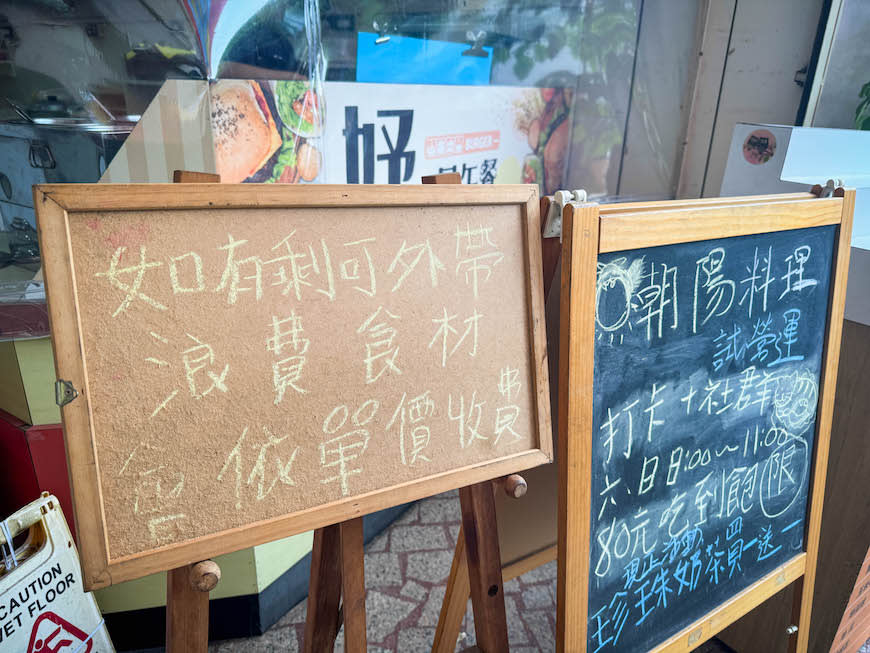 好
BURGER
早午餐
如有剩可外帶
浪費食材
會依單價收費
朝陽料理
試營運
打卡+社群
六日8:00~11:00
80元吃到飽 限
現正活動
珍珠奶茶買一送一
CAUTION
WET FLOOR